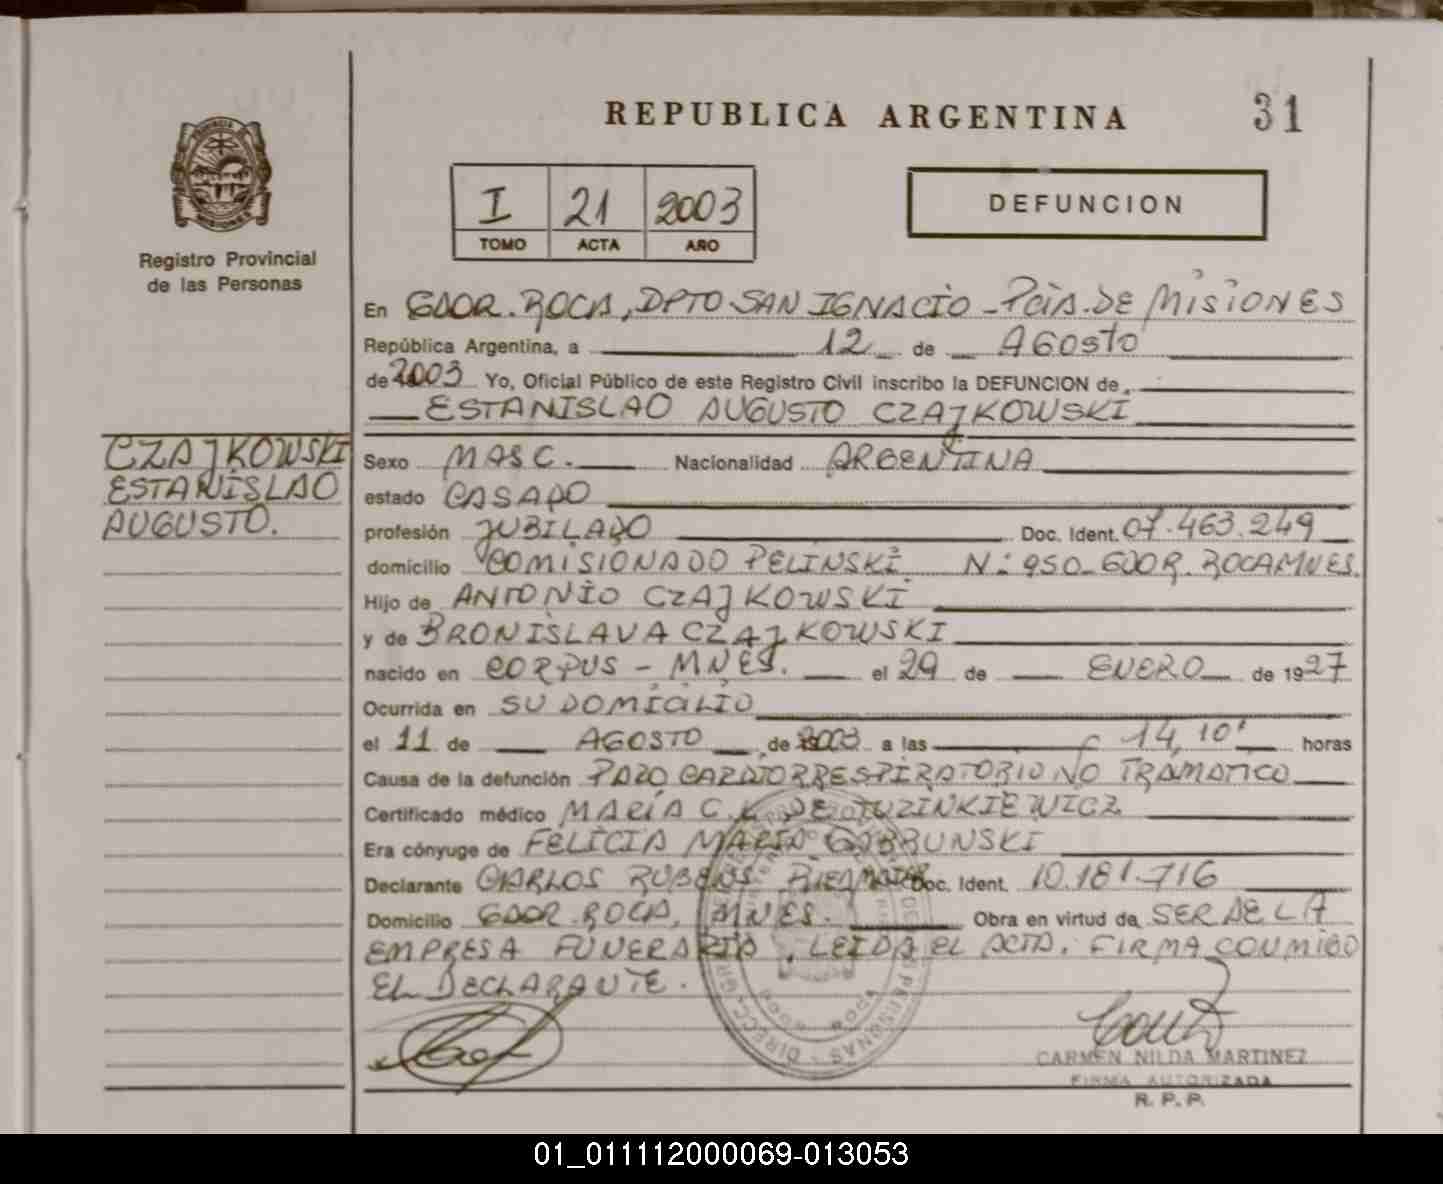 REPUBLICA ARGENTINA 31
PROVINCIA DE
MISIONES
Registro Provincial
de las Personas
I 21 2003
TOMO ACTA AÑO
DEFUNCION
En GDOR. ROCA, DPTO SAN IGNACIO - Pcia. DE MISIONES
República Argentina, a 12 de AGOSTO
de 2003 Yo, Oficial Público de este Registro Civil inscribo la DEFUNCION de
ESTANISLAO AUGUSTO CZAJKOWSKI
CZAJKOWSKI
ESTANISLAO
AUGUSTO.
Sexo MASC. Nacionalidad ARGENTINA
estado CASADO
profesión JUBILADO Doc. Ident. 07.463.249
domicilio COMISIONADO PELINSKI N: 950 - GDOR. ROCA MNES.
Hijo de ANTONIO CZAJKOWSKI
y de BRONISLAVA CZAJKOWSKI
nacido en CORPUS - MNES. el 29 de ENERO de 1927
Ocurrida en SU DOMICILIO
el 11 de AGOSTO de 2003 a las 14,10' horas
Causa de la defunción PARO CARDIORRESPIRATORIO NO TRAMATICO
Certificado médico MARÍA C. K. DE TUZINKIEWICZ
Era cónyuge de FELICIA MARIA
Declarante CARLOS RUBENS Doc. Ident. 10.181.716
Domicilio GDOR. ROCA, MNES. Obra en virtud de SER DE LA
EMPRESA FUNERARIA. LEIDA EL ACTA. FIRMA CONMIGO
EL DECLARANTE.
DE LAS PERSONAS - DIRECC. GRAL.
ROCA
CARMEN NILDA MARTINEZ
FIRMA AUTORIZADA
R. P. P.
01_011112000069-013053